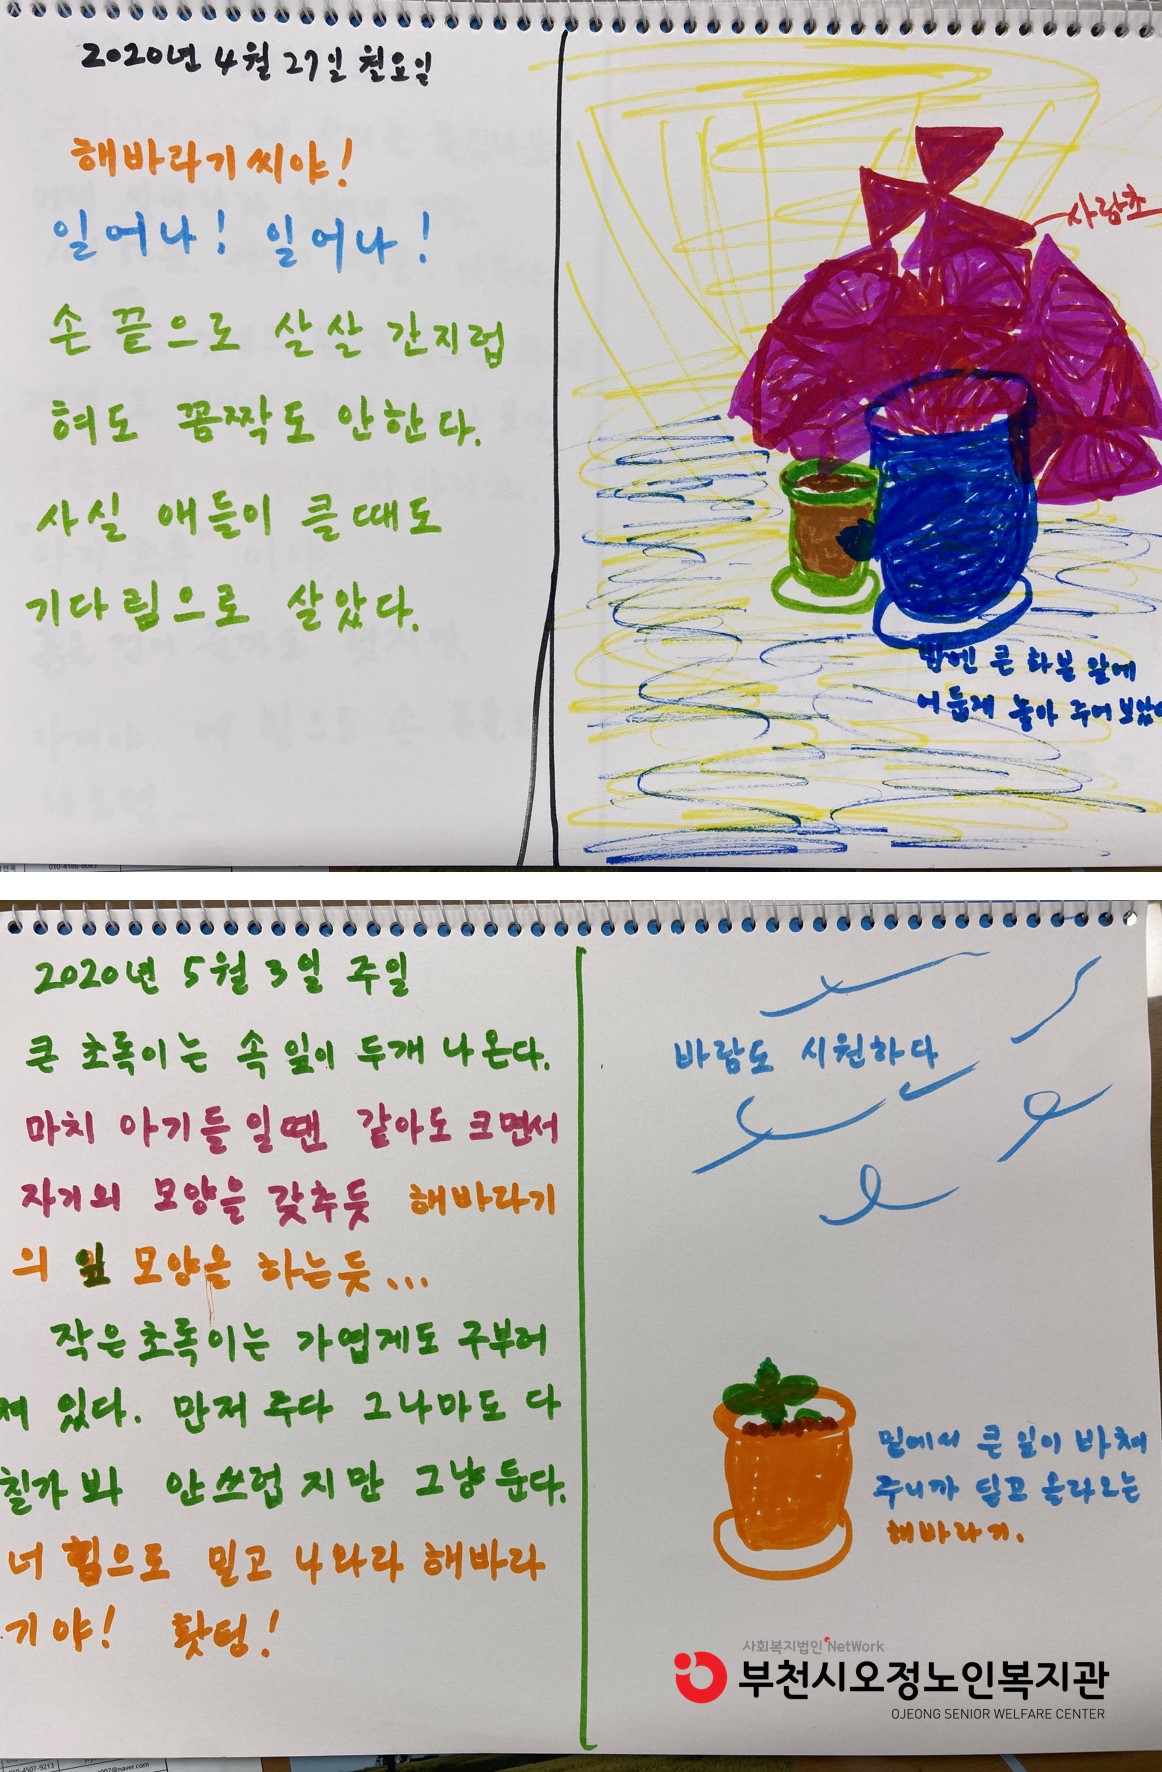 2020년 4월 27일 월요일
해바라기 씨야!
일어나! 일어나!
손 끝으로 살살 간지럽
혀도 꼼짝도 안한다.
사실 애들이 클때도
기다림으로 살았다.
사랑초
밤엔 큰 화분 앞에
어둡게 놓아 주어 보았
2020년 5월 3일 주일
큰 초록이는 속 잎이 두개 나온다.
마치 아기들 일땐 같아도 크면서
자기의 모양을 갖추듯 해바라기
의 잎 모양을 하는듯...
작은초록이는 가엽게도 구부러
져 있다. 만져 주다 그나마도 다
칠가 봐 안쓰럽지만 그냥 둔다.
너 힘으로 밀고 나와라 해바라
기야! 홧팅!
바람도 시원하다
밑에서 큰 잎이 바쳐
주니까 밀고 올라오는
해바라기.
사회복지법인 NetWork
부천시오정노인복지관
OJEONG SENIOR WELFARE CENTER
010-4186-8085
010-4507-9213